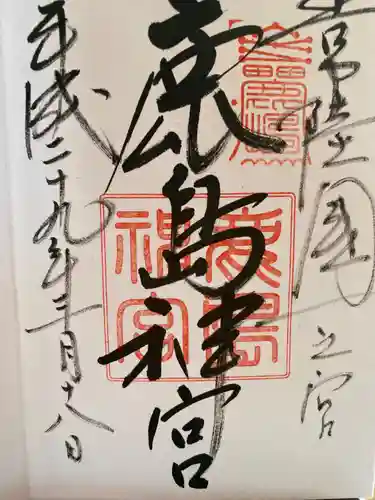 常陸国一之宮
鹿島神宮
鹿島神宮
平成二十九年三月十八日